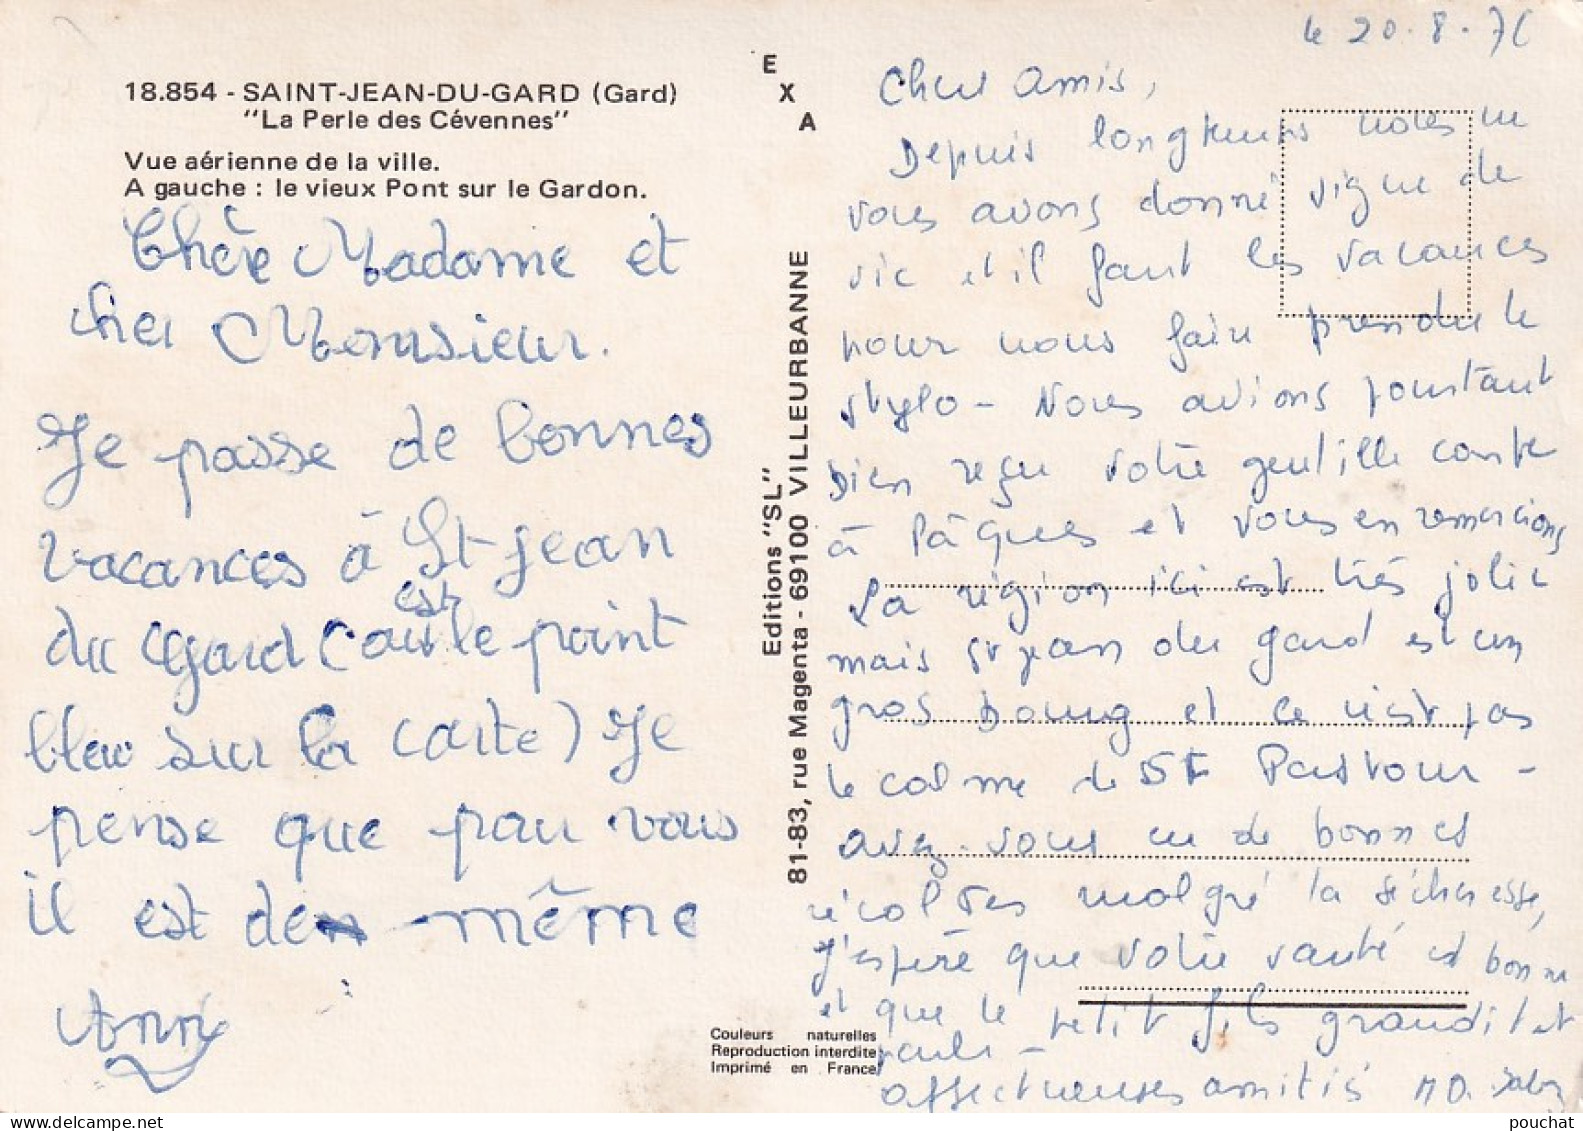 18.854 - SAINT-JEAN-DU-GARD (Gard)
"La Perle des Cévennes"
Vue aérienne de la ville.
A gauche : le vieux Pont sur le Gardon.
Chère Madame et
cher Monsieur.
Je passe de bonnes
vacances à St-Jean
du Gard (est le point
bleu sur la carte) Je
pense que pour vous
il est de même
E
X
A
Editions "SL"
81-83, rue Magenta - 69100 VILLEURBANNE
Couleurs naturelles
Reproduction interdite
Imprimé en France
le 20.8.76
Chers amis,
Depuis longtemps nous ne
vous avons donné signe de
vie et il faut les vacances
pour nous faire prendre le
stylo - Nous avions pourtant
bien reçu votre gentille carte
à Pâques et vous en remercions
La région ici est très jolie
mais St jean du gard est un
gros bourg et ce n'est pas
le calme de St Pastour -
avez-vous eu de bonnes
récoltes malgré la sécheresse,
J'espère que votre santé est bonne
et que le petit fils grandit et
parle -
affectueuses amitiés MO.
pouchat